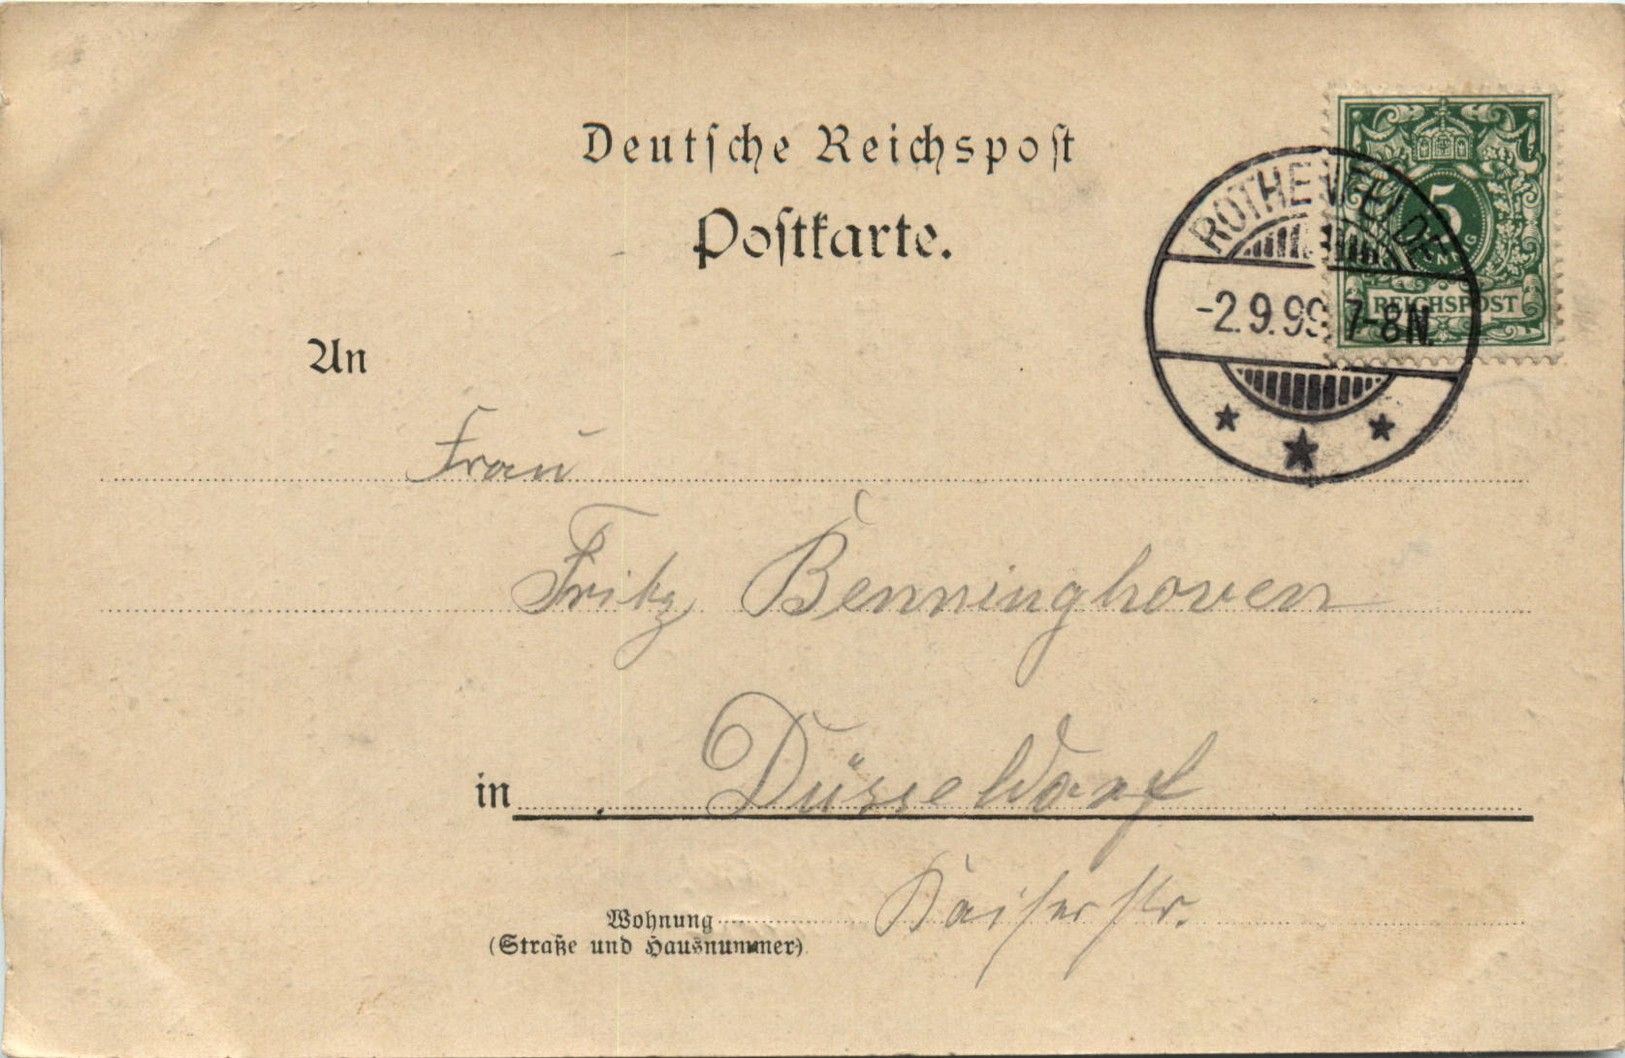 Deutsche Reichspost
Postkarte.
ROTHENFELDE
-2.9.99. 7-8N.
5
REICHSPOST
An
Frau
Fritz Benninghoven
in Düsseldorf
Wohnung Kaiserstr.
(Straße und Hausnummer)